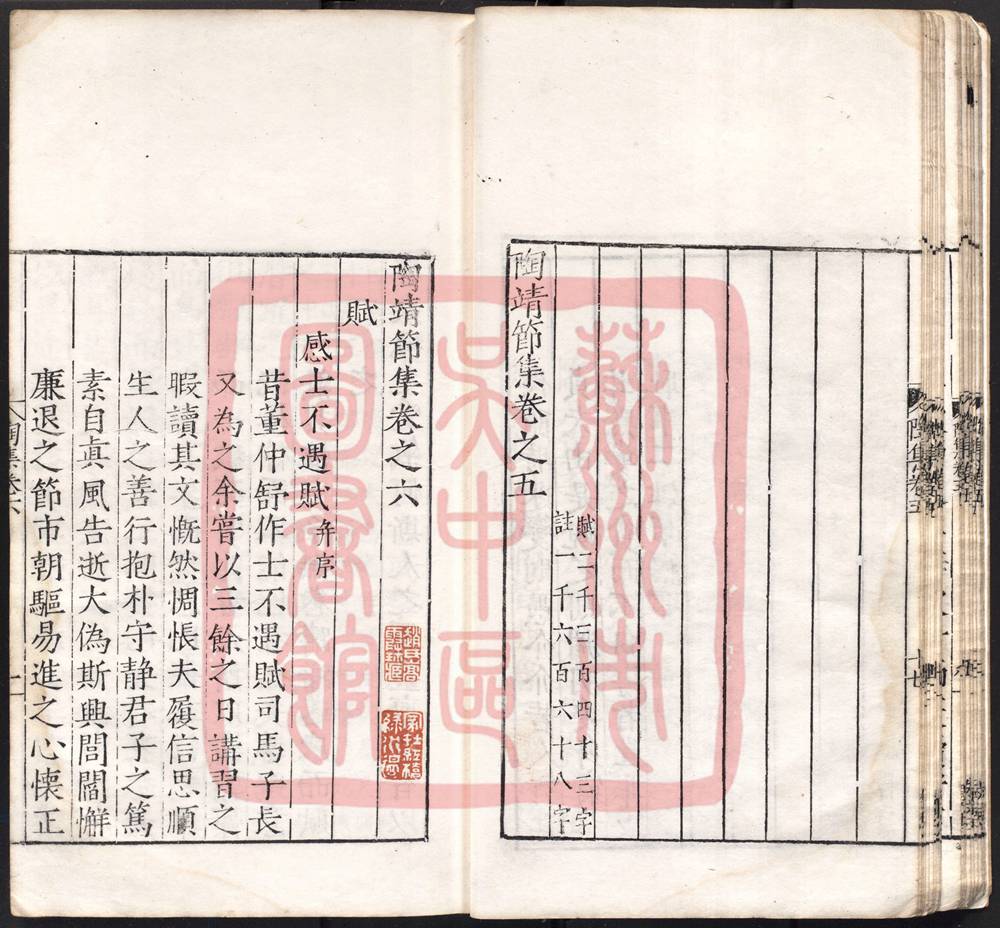 陶靖節集卷之五
賦二千三百四十三字
註一千六百六十八字
陶集卷五
十七
陶靖節集卷之六
賦
感士不遇賦并序
昔董仲舒作士不遇賦司馬子長
又為之余嘗以三餘之日講習之
暇讀其文慨然惆悵夫履信思順
生人之善行抱朴守静君子之篤
素自真風告逝大偽斯興閭閻懈
廉退之節市朝驅易進之心懷正
陶集卷六
蘇州市
吳中區
圖書館